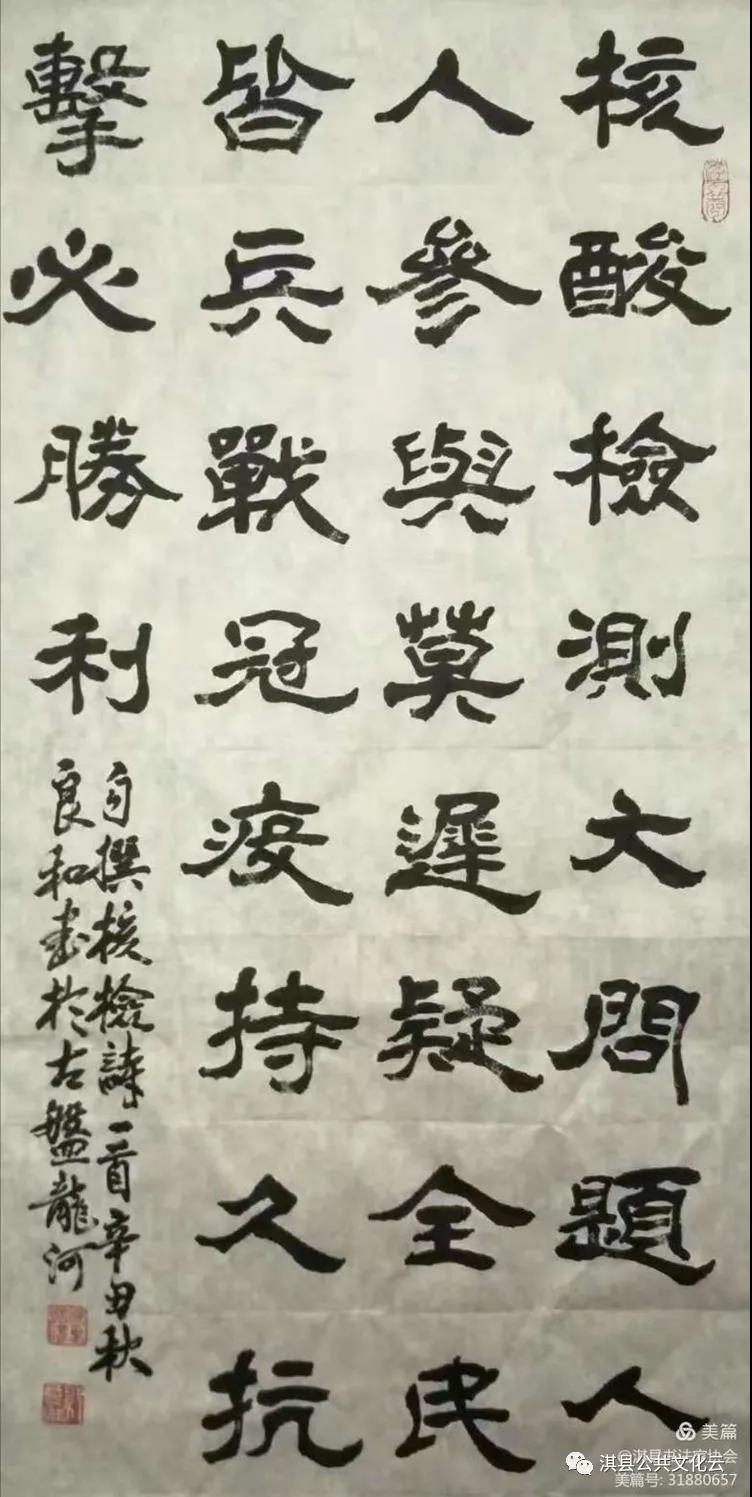 核酸檢測大問題人
人參與莫遲疑全民
皆兵戰冠疫持久抗
擊必勝利
自撰核檢詩一首辛丑秋
良和書於古盤龍河
美篇
@淇县书法家协会
淇县公共文化云
美篇号: 31880657